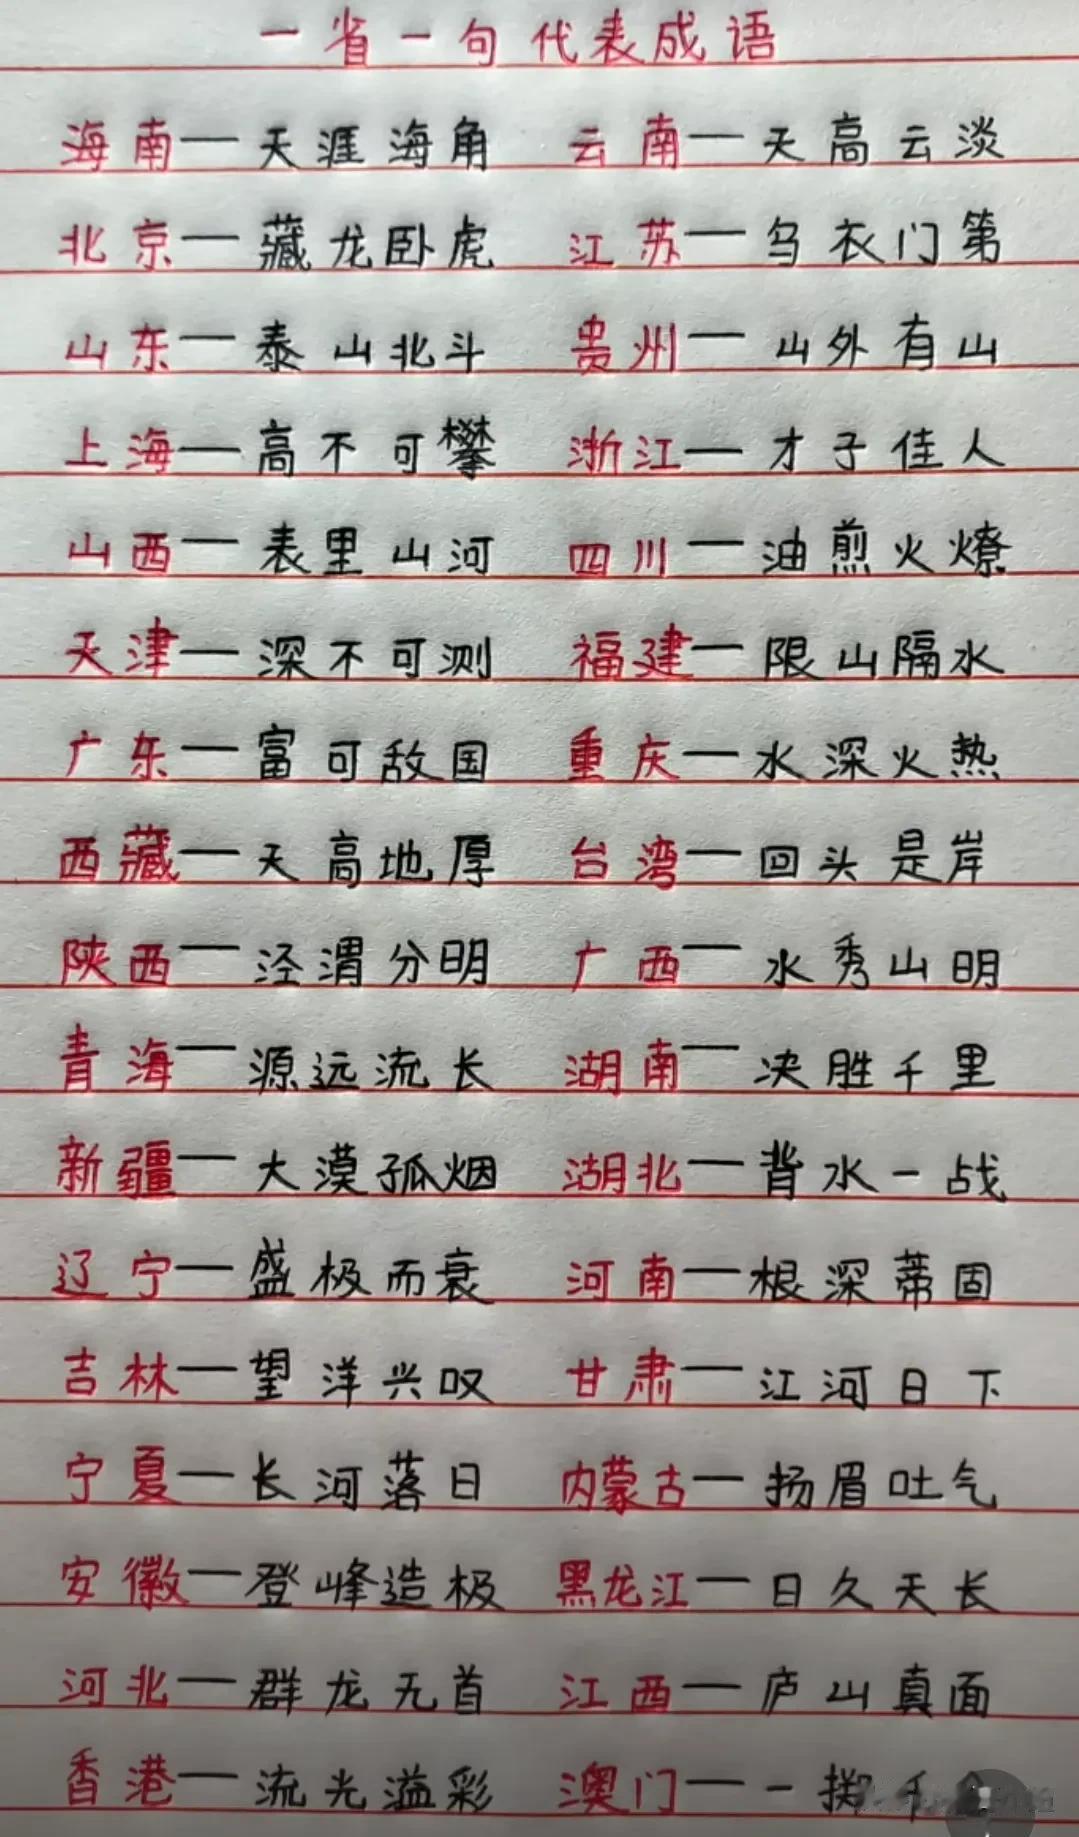 一省一句代表成语
海南一天涯海角 云南一天高云淡
北京一藏龙卧虎 江苏一乌衣门第
山东一泰山北斗 贵州一山外有山
上海一高不可攀 浙江一才子佳人
山西一表里山河 四川一油煎火燎
天津一深不可测 福建一限山隔水
广东一富可敌国 重庆一水深火热
西藏一天高地厚 台湾一回头是岸
陕西一泾渭分明 广西一水秀山明
青海一源远流长 湖南一决胜千里
新疆一大漠孤烟 湖北一背水一战
辽宁一盛极而衰 河南一根深蒂固
吉林一望洋兴叹 甘肃一江河日下
宁夏一长河落日 内蒙古一扬眉吐气
安徽一登峰造极 黑龙江一日久天长
河北一群龙无首 江西一庐山真面
香港一流光溢彩 澳门一一掷千